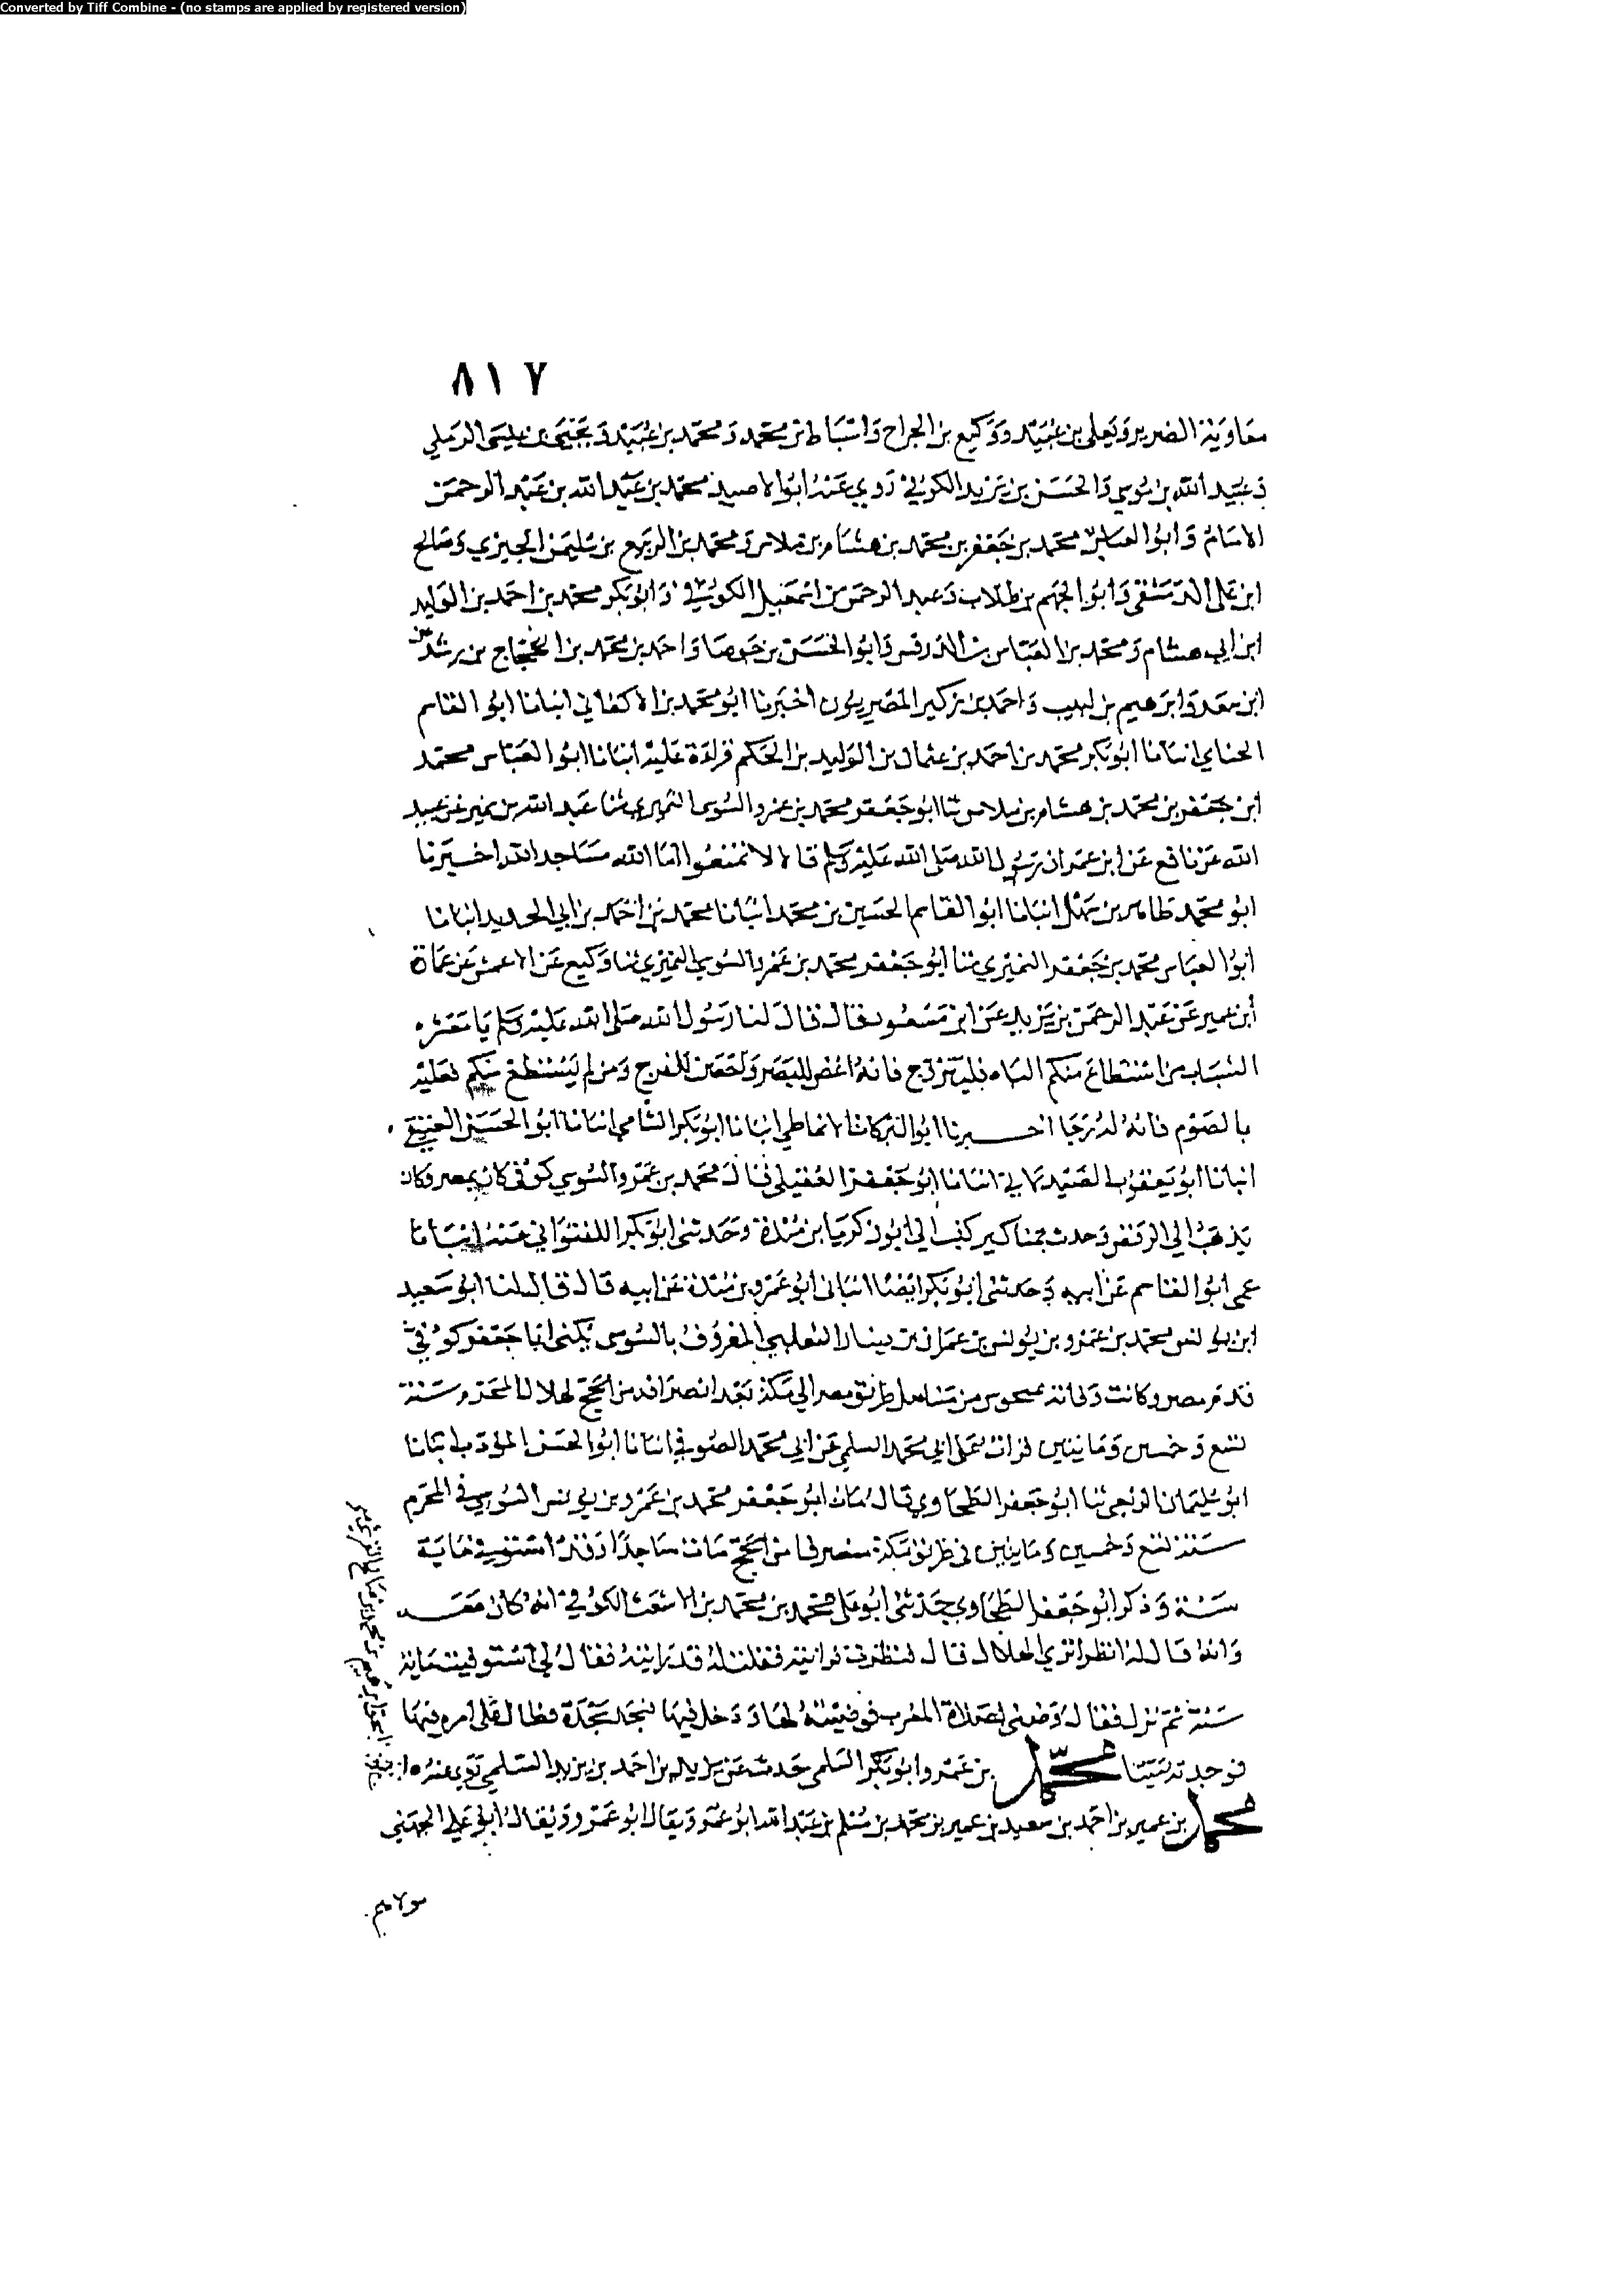 Converted by Tiff Combine - (no stamps are applied by registered version)
٨١٧
معاوية الضرير ويعلى بن عبيد ووكيع بن الجراح واسباط بن محمد ومحمد بن عبيد ويحيى بن عيسى الرملي
وعبيد الله بن موسى والحسن بن يزيد الكوفي روى عنه ابو الاصيد محمد بن عبد الله بن عبد الرحمن
الامام وابو العباس محمد بن جعفر بن محمد بن هشام بن ملاس ومحمد بن الربيع بن سليمن الجيزي وصالح
ابن علي الدمشقي وابو الجهم بن طلاب وعبد الرحمن بن اسمعيل الكوفي وابو بكر محمد بن احمد بن الوليد
ابن ابي هشام ومحمد بن العباس بن الدرفس وابو الحسن بن جوصا واحمد بن محمد بن الحجاج بن رشدين
ابن سعد وابرهيم بن لهيب واحمد بن زكير المصريون اخبرنا ابو محمد بن الاكفاني انبانا ابو القاسم
الحنايي انبانا ابو بكر محمد بن احمد بن عثمان بن الوليد بن الحكم قراءة عليه انبانا ابو العباس محمد
ابن جعفر بن محمد بن هشام بن ملاس ثنا ابو جعفر محمد بن عمرو السوسي النميري ثنا عبد الله بن نمير عن عبيد
الله عن نافع عن ابن عمر ان رسول الله صلى الله عليه وسلم قال لا تمنعوا اما الله مساجد الله اخبرنا
ابو محمد طاهر بن سهل انبانا ابو القاسم الحسين بن محمد انبانا محمد بن احمد بن ابي الحديد انبانا
ابو العباس محمد بن جعفر النميري ثنا ابو جعفر محمد بن عمرو السوسي النميري ثنا وكيع عن الاعمش عن عمارة
ابن عمير عن عبد الرحمن بن يزيد عن ابن مسعود قال قال لنا رسول الله صلى الله عليه وسلم يا معشر
الشباب من استطاع منكم الباه فليتزوج فانه اغض للبصر واحصن للفرج ومن لم يستطع منكم فعليه
بالصوم فانه له وجا اخبرنا ابو البركات الانماطي انبانا ابو بكر الشامي انبانا ابو الحسن العتيقي
انبانا ابو يعقوب الصيدلاني انبانا ابو جعفر العقيلي قال محمد بن عمرو السوسي كوفي كان بمصر وكان
يذهب الى الرفض وحدث بمناكير كتب الي ابو زكريا بن مندة وحدثني ابو بكر اللفتواني عنه انبانا
عمي ابو القاسم عن ابيه وحدثني ابو بكر ايضا انبانا ابو عمرو بن مندة عن ابيه قال قال لنا ابو سعيد
ابن يونس محمد بن عمرو بن يونس بن عمران بن دينار الثعلبي المعروف بالسوسي يكنى ابا جعفر كوفي
قدم مصر وكانت وفاته من مناهل طريق مصر الى مكة بعد انصرافه من الحج لهلال المحرم سنة
تسع وخمسين وماتين قرات على ابي محمد السلمي عن ابي محمد الصوفي انبانا ابو الحسن المؤدب انبانا
ابو سليمان الربعي ثنا ابو جعفر الطحاوي قال مات ابو جعفر محمد بن عمرو بن يونس السوسي في المحرم
سنة تسع وخمسين وماتين في طريق مكة منصرفا من الحج مات ساجدا وقد استوفى مائة
سنة وذكر ابو جعفر الطحاوي حدثني ابو علي محمد بن محمد بن الاشعث الكوفي انه كان معه
وانه قال له انظر اترى الهلال قال فنظرت فرايته فقلت له قد رايته فقال لي استوفيت مائة
سنة ثم نزل فقال وضئني لصلاة المغرب فوضيته لها ودخل فيها فسجد سجدة فطال علي امره فيها
فوجدته ميتا محمد بن عمرو ابو بكر السلمي حدث عن يزيد بن احمد بن يزيد السلمي روى عنه
محمد بن عمير بن احمد بن سعيد بن عمير بن محمد بن مسلم بن عبد الله ابو عمر ويقال ابو عمرو ويقال ابو علي الجهني
مولاهم